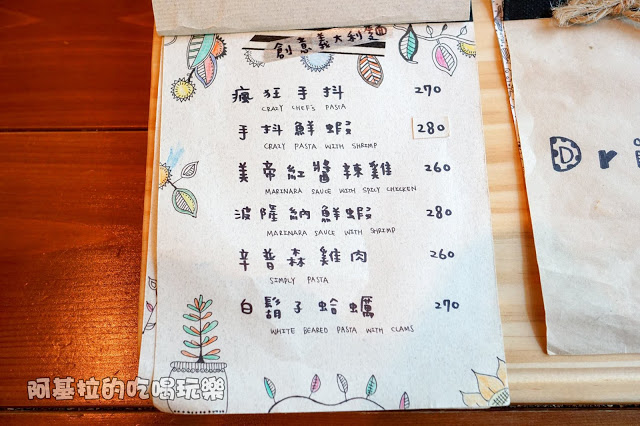 創意義大利麵
瘋狂手抖 270
CRAZY CHEF'S PASTA
手抖鮮蝦 280
CRAZY PASTA WITH SHRIMP
美帝紅醬辣雞 260
MARINARA SAUCE WITH SPICY CHICKEN
波薩納鮮蝦 280
MARINARA SAUCE WITH SHRIMP
辛普森雞肉 260
SIMPLY PASTA
白鬍子蛤蠣 270
WHITE BEARED PASTA WITH CLAMS
Dr
阿基拉的吃喝玩樂